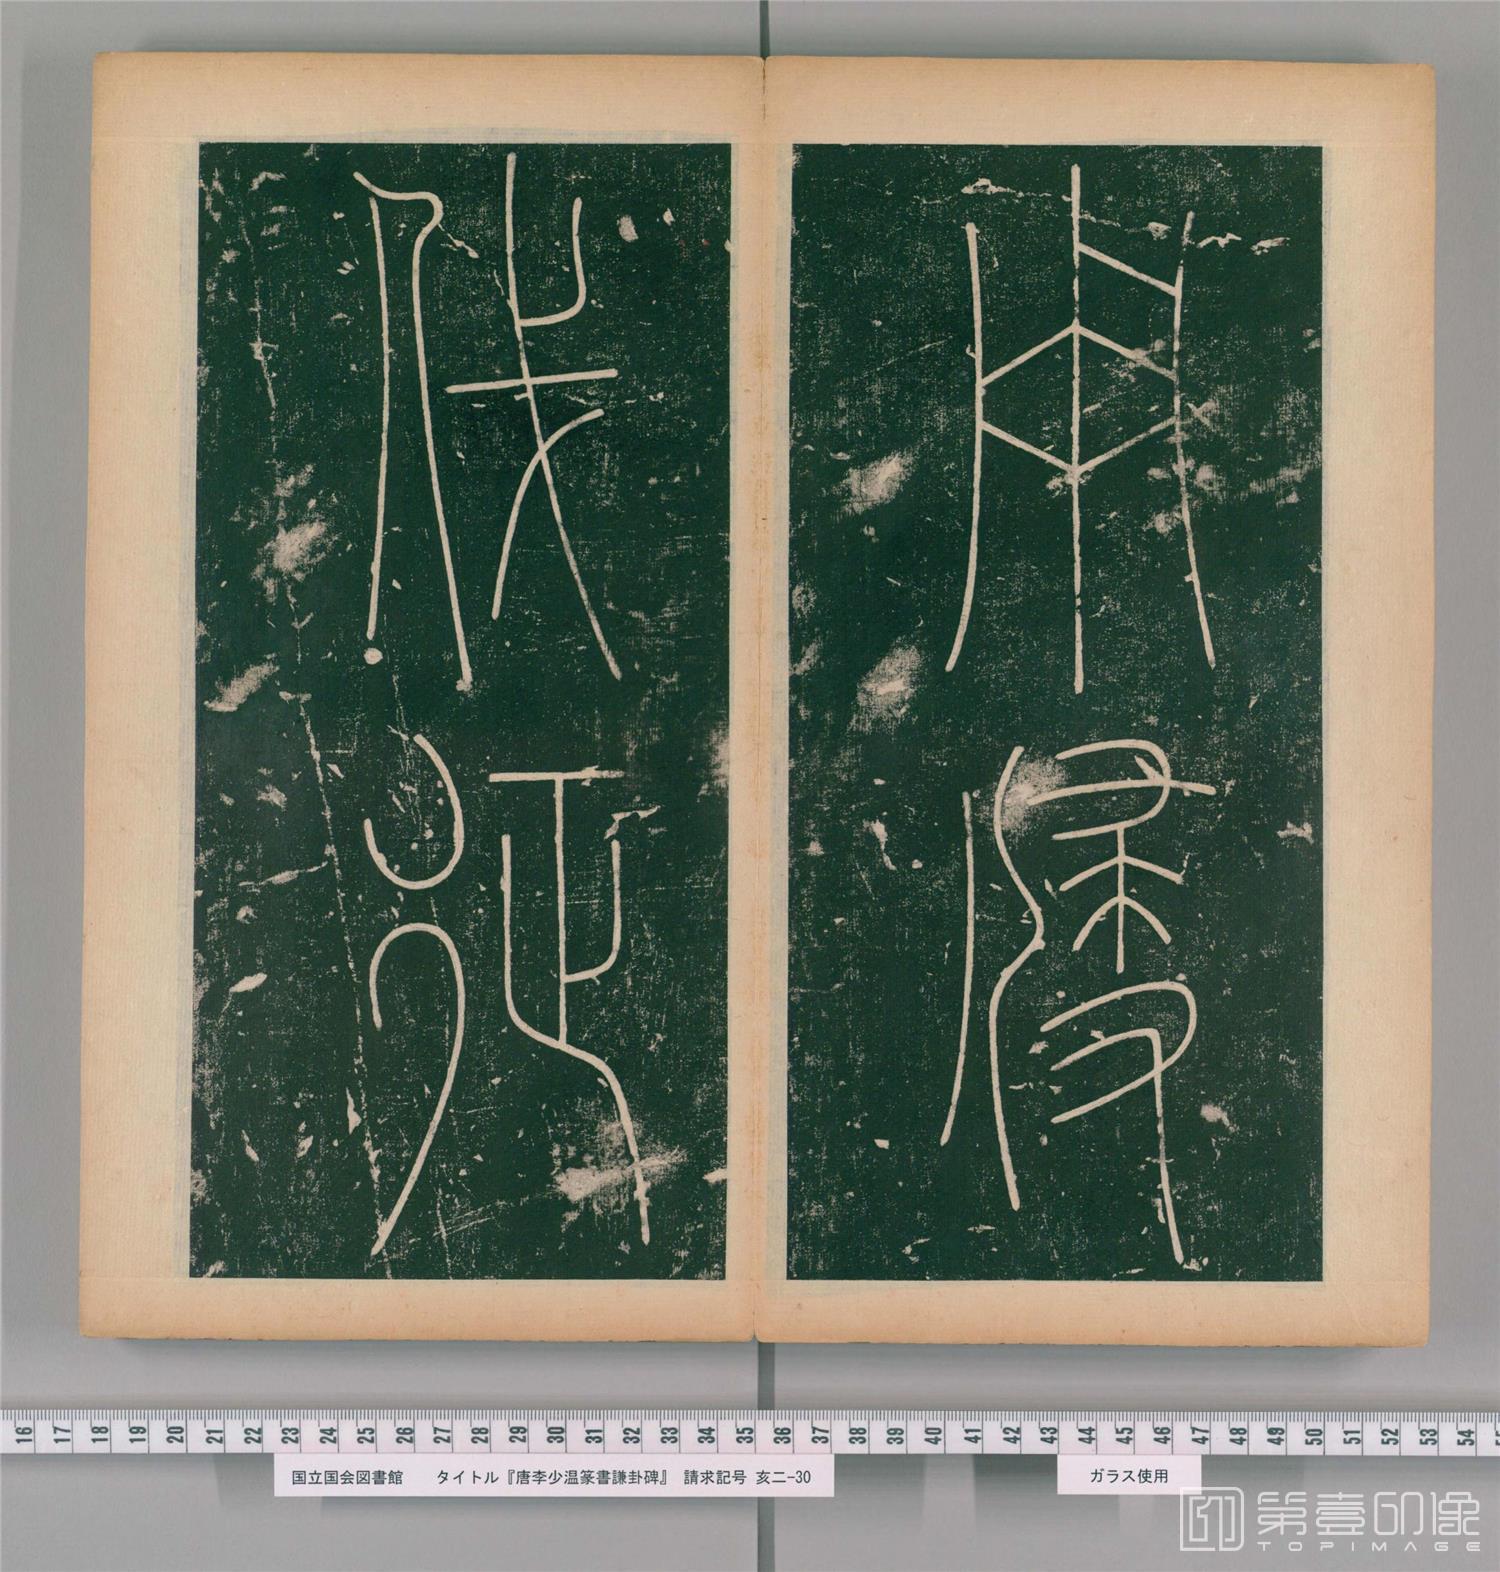 用侵
伐征
16 17 18 19 20 21 22 23 24 25 26 27 28 29 30 31 32 33 34 35 36 37 38 39 40 41 42 43 44 45 46 47 48 49 50 51 52 53 54
国立国会図書館 タイトル『唐李少温篆書謙卦碑』 請求記号 亥二-30
ガラス使用
第壹印像
TOPIMAGE